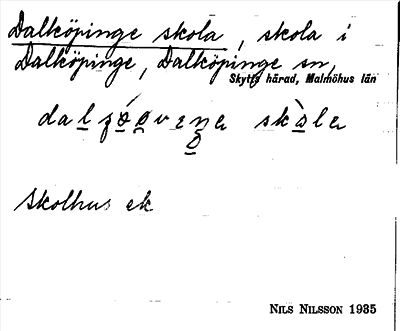 Dalköpinge skola, skola i
Dalköpinge, Dalköpinge sn,
Skytts härad, Malmöhus län
Skolhus ek
NILS NILSSON 1935